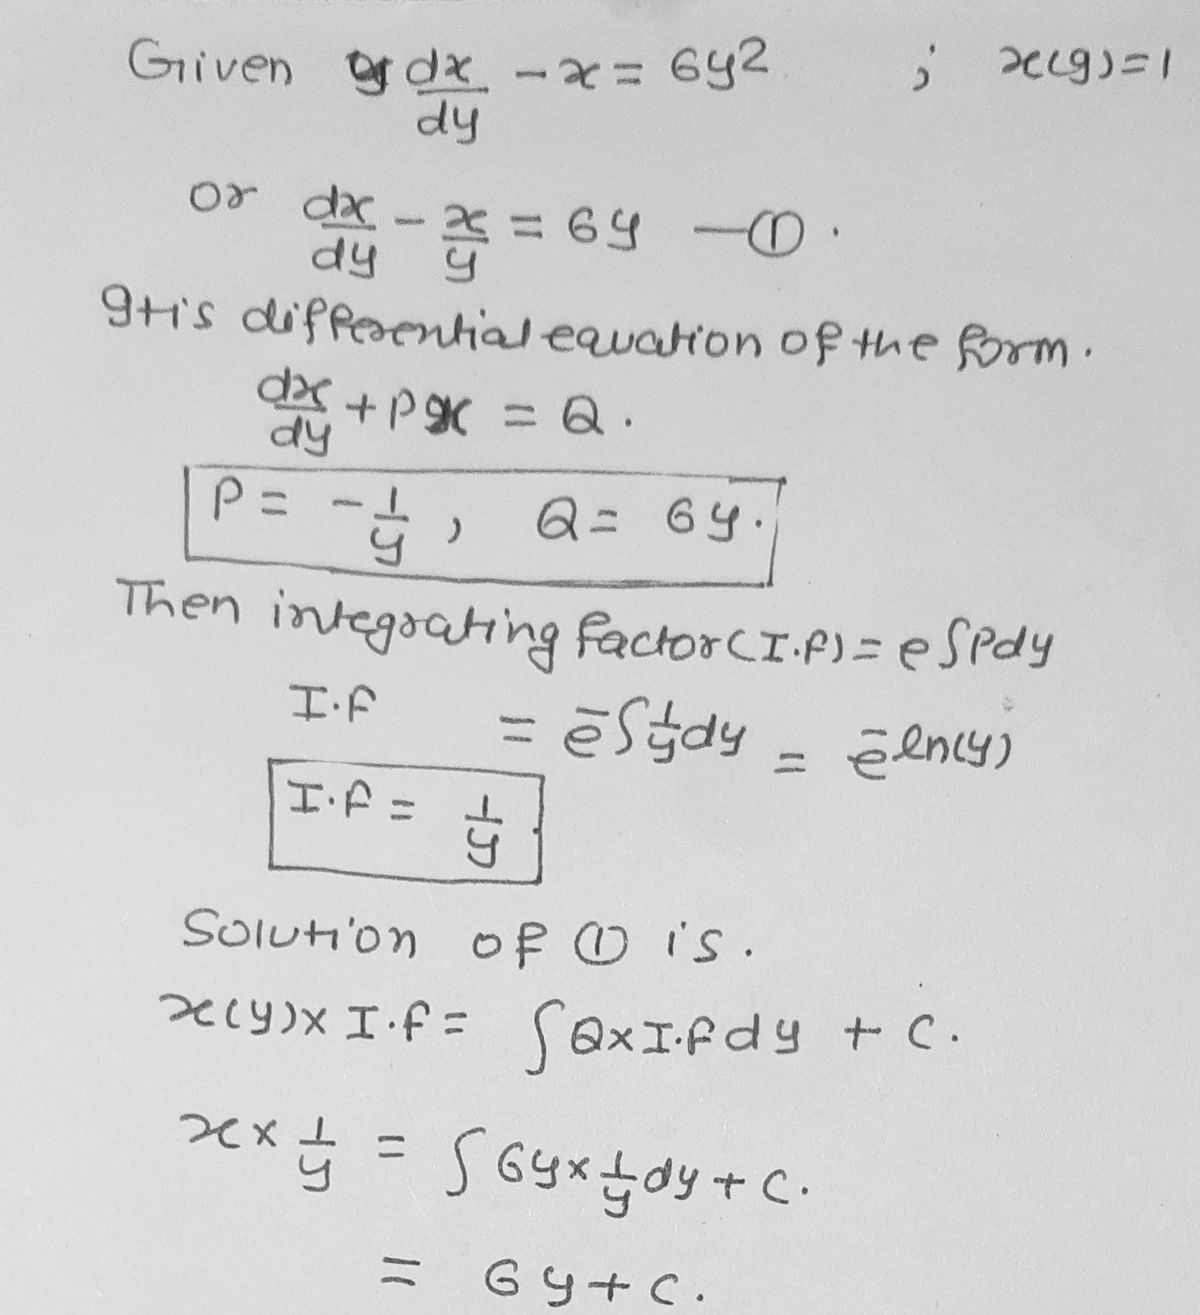 Given y dx/dy - x = 6y2 ; x(9)=1
or dx/dy - x/y = 6y —①.
It is differential equation of the form.
dx/dy + Px = Q.
P = -1/y , Q = 6y.
Then integrating factor (I.f) = e∫Pdy
I.f = e-∫1/y dy = e-ln(y)
I.f = 1/y
Solution of ① is.
x(y)x I.f = ∫Q x I.f dy + C.
x x 1/y = ∫6y x 1/y dy + C.
= 6y + C.